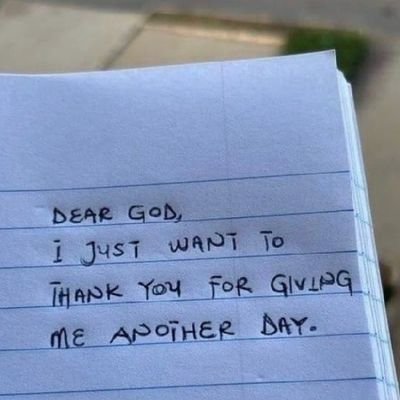 DEAR GOD,
I JUST WANT TO
THANK YOU FOR GIVING
ME ANOTHER DAY.